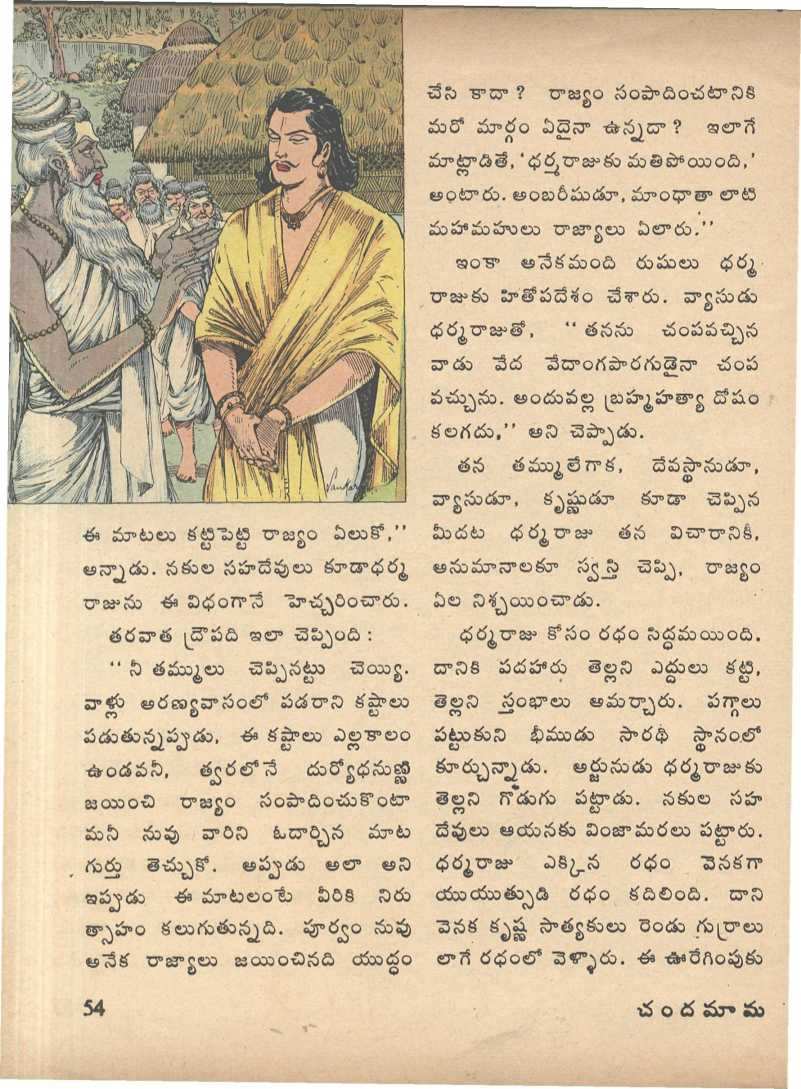 ఈ మాటలు కట్టిపెట్టి రాజ్యం ఏలుకో,''
అన్నాడు. నకుల సహదేవులు కూడాధర్మ
రాజును ఈ విధంగానే హెచ్చరించారు.
తరవాత ద్రౌపది ఇలా చెప్పింది :
'' నీ తమ్ములు చెప్పినట్టు చెయ్యి.
వాళ్లు అరణ్యవాసంలో పడరాని కష్టాలు
పడుతున్నప్పుడు, ఈ కష్టాలు ఎల్లకాలం
ఉండవనీ, త్వరలోనే దుర్యోధనుణ్ణి
జయించి రాజ్యం సంపాదించుకొంటా
మనీ నువు వారిని ఓదార్చిన మాట
గుర్తు తెచ్చుకో. అప్పుడు అలా అని
ఇప్పుడు ఈ మాటలంటే వీరికి నిరు
త్సాహం కలుగుతున్నది. పూర్వం నువు
అనేక రాజ్యాలు జయించినది యుద్ధం
చేసి కాదా ? రాజ్యం సంపాదించటానికి
మరో మార్గం ఏదైనా ఉన్నదా ? ఇలాగే
మాట్లాడితే, 'ధర్మరాజుకు మతిపోయింది,'
అంటారు. అంబరీషుడూ, మాంధాతా లాటి
మహామహులు రాజ్యాలు ఏలారు.''
ఇంకా అనేకమంది రుషులు ధర్మ
రాజుకు హితోపదేశం చేశారు. వ్యాసుడు
ధర్మరాజుతో, '' తనను చంపవచ్చిన
వాడు వేద వేదాంగపారగుడైనా చంప
వచ్చును. అందువల్ల బ్రహ్మహత్యా దోషం
కలగదు,'' అని చెప్పాడు.
తన తమ్ములేగాక, దేవస్థానుడూ,
వ్యాసుడూ, కృష్ణుడూ కూడా చెప్పిన
మీదట ధర్మరాజు తన విచారానికీ,
అనుమానాలకూ స్వస్తి చెప్పి, రాజ్యం
ఏల నిశ్చయించాడు.
ధర్మరాజు కోసం రథం సిద్ధమయింది.
దానికి పదహారు తెల్లని ఎద్దులు కట్టి,
తెల్లని స్తంభాలు అమర్చారు. పగ్గాలు
పట్టుకుని భీముడు సారథి స్థానంలో
కూర్చున్నాడు. అర్జునుడు ధర్మరాజుకు
తెల్లని గొడుగు పట్టాడు. నకుల సహ
దేవులు ఆయనకు వింజామరలు పట్టారు.
ధర్మరాజు ఎక్కిన రథం వెనకగా
యుయుత్సుడి రథం కదిలింది. దాని
వెనక కృష్ణ సాత్యకులు రెండు గుర్రాలు
లాగే రథంలో వెళ్ళారు. ఈ ఊరేగింపుకు
54
చందమామ